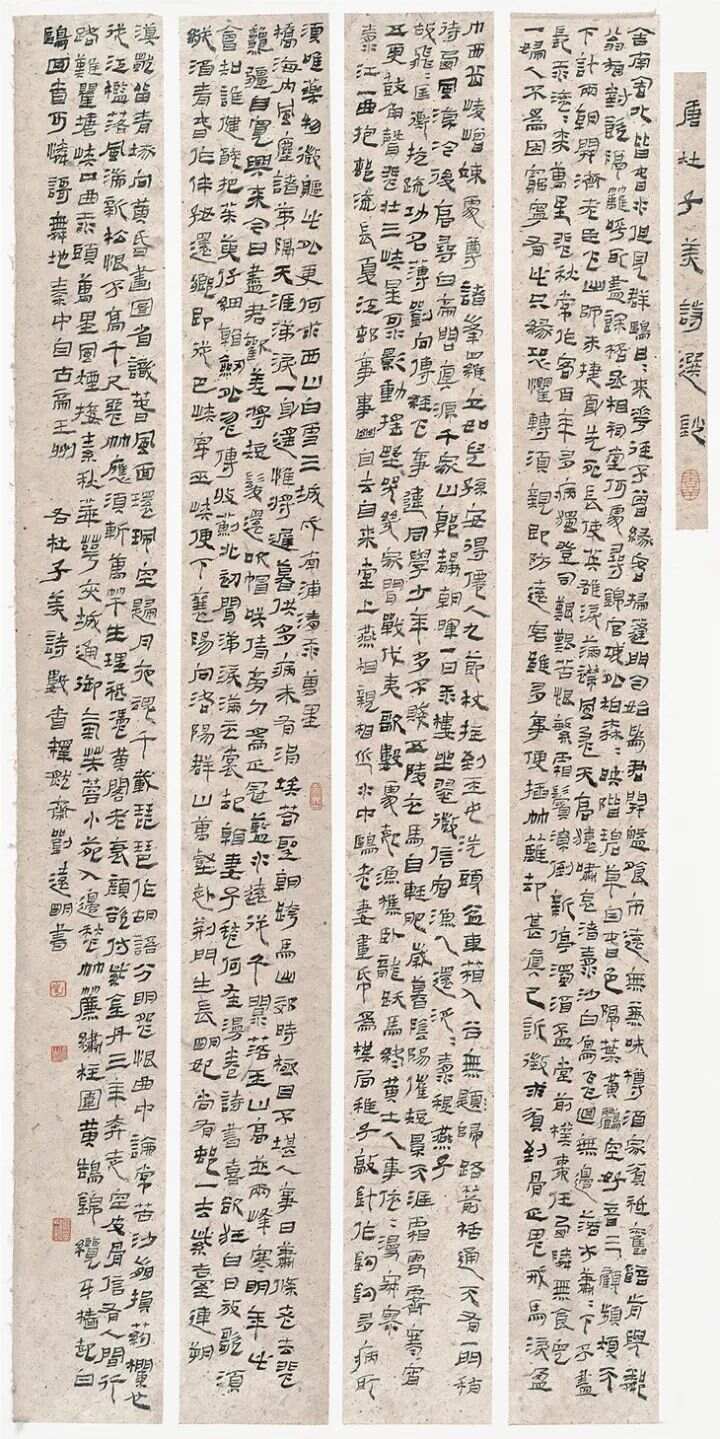 唐杜子美詩選鈔
舍南舍北皆春水但見群鷗日日來花徑不曾緣客掃蓬門今始為君開盤飧市遠無兼味樽酒家貧祗舊醅肯與鄰
翁相對飲隔籬呼取盡餘杯丞相祠堂何處尋錦官城外柏森森映階碧草自春色隔葉黃鸝空好音三顧頻煩天
下計兩朝開濟老臣心出師未捷身先死長使英雄淚滿襟風急天高猿嘯哀渚清沙白鳥飛迴無邊落木蕭蕭下不盡
長江滾滾來萬里悲秋常作客百年多病獨登臺艱難苦恨繁霜鬢潦倒新停濁酒杯堂前撲棗任西鄰無食無兒
一婦人不為困窮寧有此只緣恐懼轉須親即防遠客雖多事便插疏籬却甚真已訴徵求貧到骨正思戎馬淚盈
巾西岳崚嶒竦處尊諸峰羅立如兒孫安得僊人九節杖拄到玉女洗頭盆車箱入谷無歸路箭栝通天有一門稍
待西風涼冷後高尋白帝問真源千家山郭靜朝暉一日江樓坐翠微信宿漁人還汎汎清秋燕子
故飛飛匡衡抗疏功名薄劉向傳經心事違同學少年多不賤五陵衣馬自輕肥歲暮陰陽催短景天涯霜雪霽寒宵
五更鼓角聲悲壯三峽星河影動搖野哭幾家聞戰伐夷歌數處起漁樵臥龍躍馬終黃土人事依依漫寂寥
清江一曲抱村流長夏江村事事幽自去自來堂上燕相親相近水中鷗老妻畫紙為棋局稚子敲針作釣鉤多病所
須唯藥物微軀此外更何求西山白雪三城戍南浦清江萬里
橋海內風塵諸弟隔天涯涕淚一身遙惟將遲暮供多病未有涓埃答聖朝跨馬出郊時極目不堪人事日蕭條老去悲
秋強自寬興來今日盡君歡羞將短髮還吹帽笑倩旁人為正冠藍水遠從千澗落玉山高並兩峰寒明年此
會知誰健醉把茱萸仔細看劍外忽傳收薊北初聞涕淚滿衣裳却看妻子愁何在漫卷詩書喜欲狂白日放歌須
縱酒青春作伴好還鄉即從巴峽穿巫峽便下襄陽向洛陽群山萬壑赴荊門生長明妃尚有村一去紫臺連朔
漠獨留青塚向黃昏畫圖省識春風面環珮空歸月夜魂千載琵琶作胡語分明怨恨曲中論常苦沙崩損藥欄也
從江檻落風湍新松恨不高千尺惡竹應須斬萬竿生理祗憑黃閣老衰顏欲付紫金丹三年奔走空皮骨信有人間行
路難瞿塘峽口曲江頭萬里風煙接素秋花萼夾城通御氣芙蓉小苑入邊愁珠簾繡柱圍黃鵠錦纜牙檣起白
鷗回首可憐歌舞地秦中自古帝王州 右杜子美詩數首釋齋劉遠明書